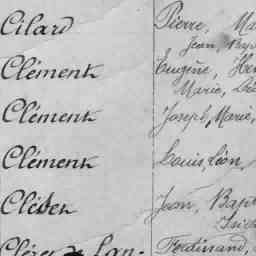 Cilard Pierre, Ma
Jean, Hyp
Clément Eugène, Hen
Marie,
Clément Joseph, Marie,
Clément Louis, Léon
Cléber Jean, Bapt
Ferdinand,